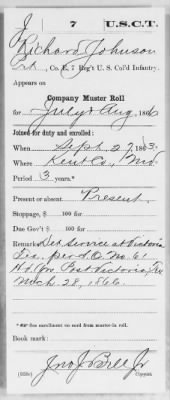 J 7 U.S.C.T.
Richard Johnson
Pvt., Co. E, 7 Reg't U. S. Col'd Infantry.
Appears on
Company Muster Roll
for July & Aug, 1866
Joined for duty and enrolled:
When Sept 27, 1863.
Where Kent Co, Md.
Period 3 years.*
Present or absent Present.
Stoppage, $ 100 for
Due Gov't $ 100 for
Remarks: Det. service at Victoria
Tex. per S.O. No. 61
Hd. Qrs. Post Victoria, Tex
Mch. 28, 1866.
*See enrollment on card from muster-in roll.
Book mark:
(358c) Jno J Bell Jr
Copyist.